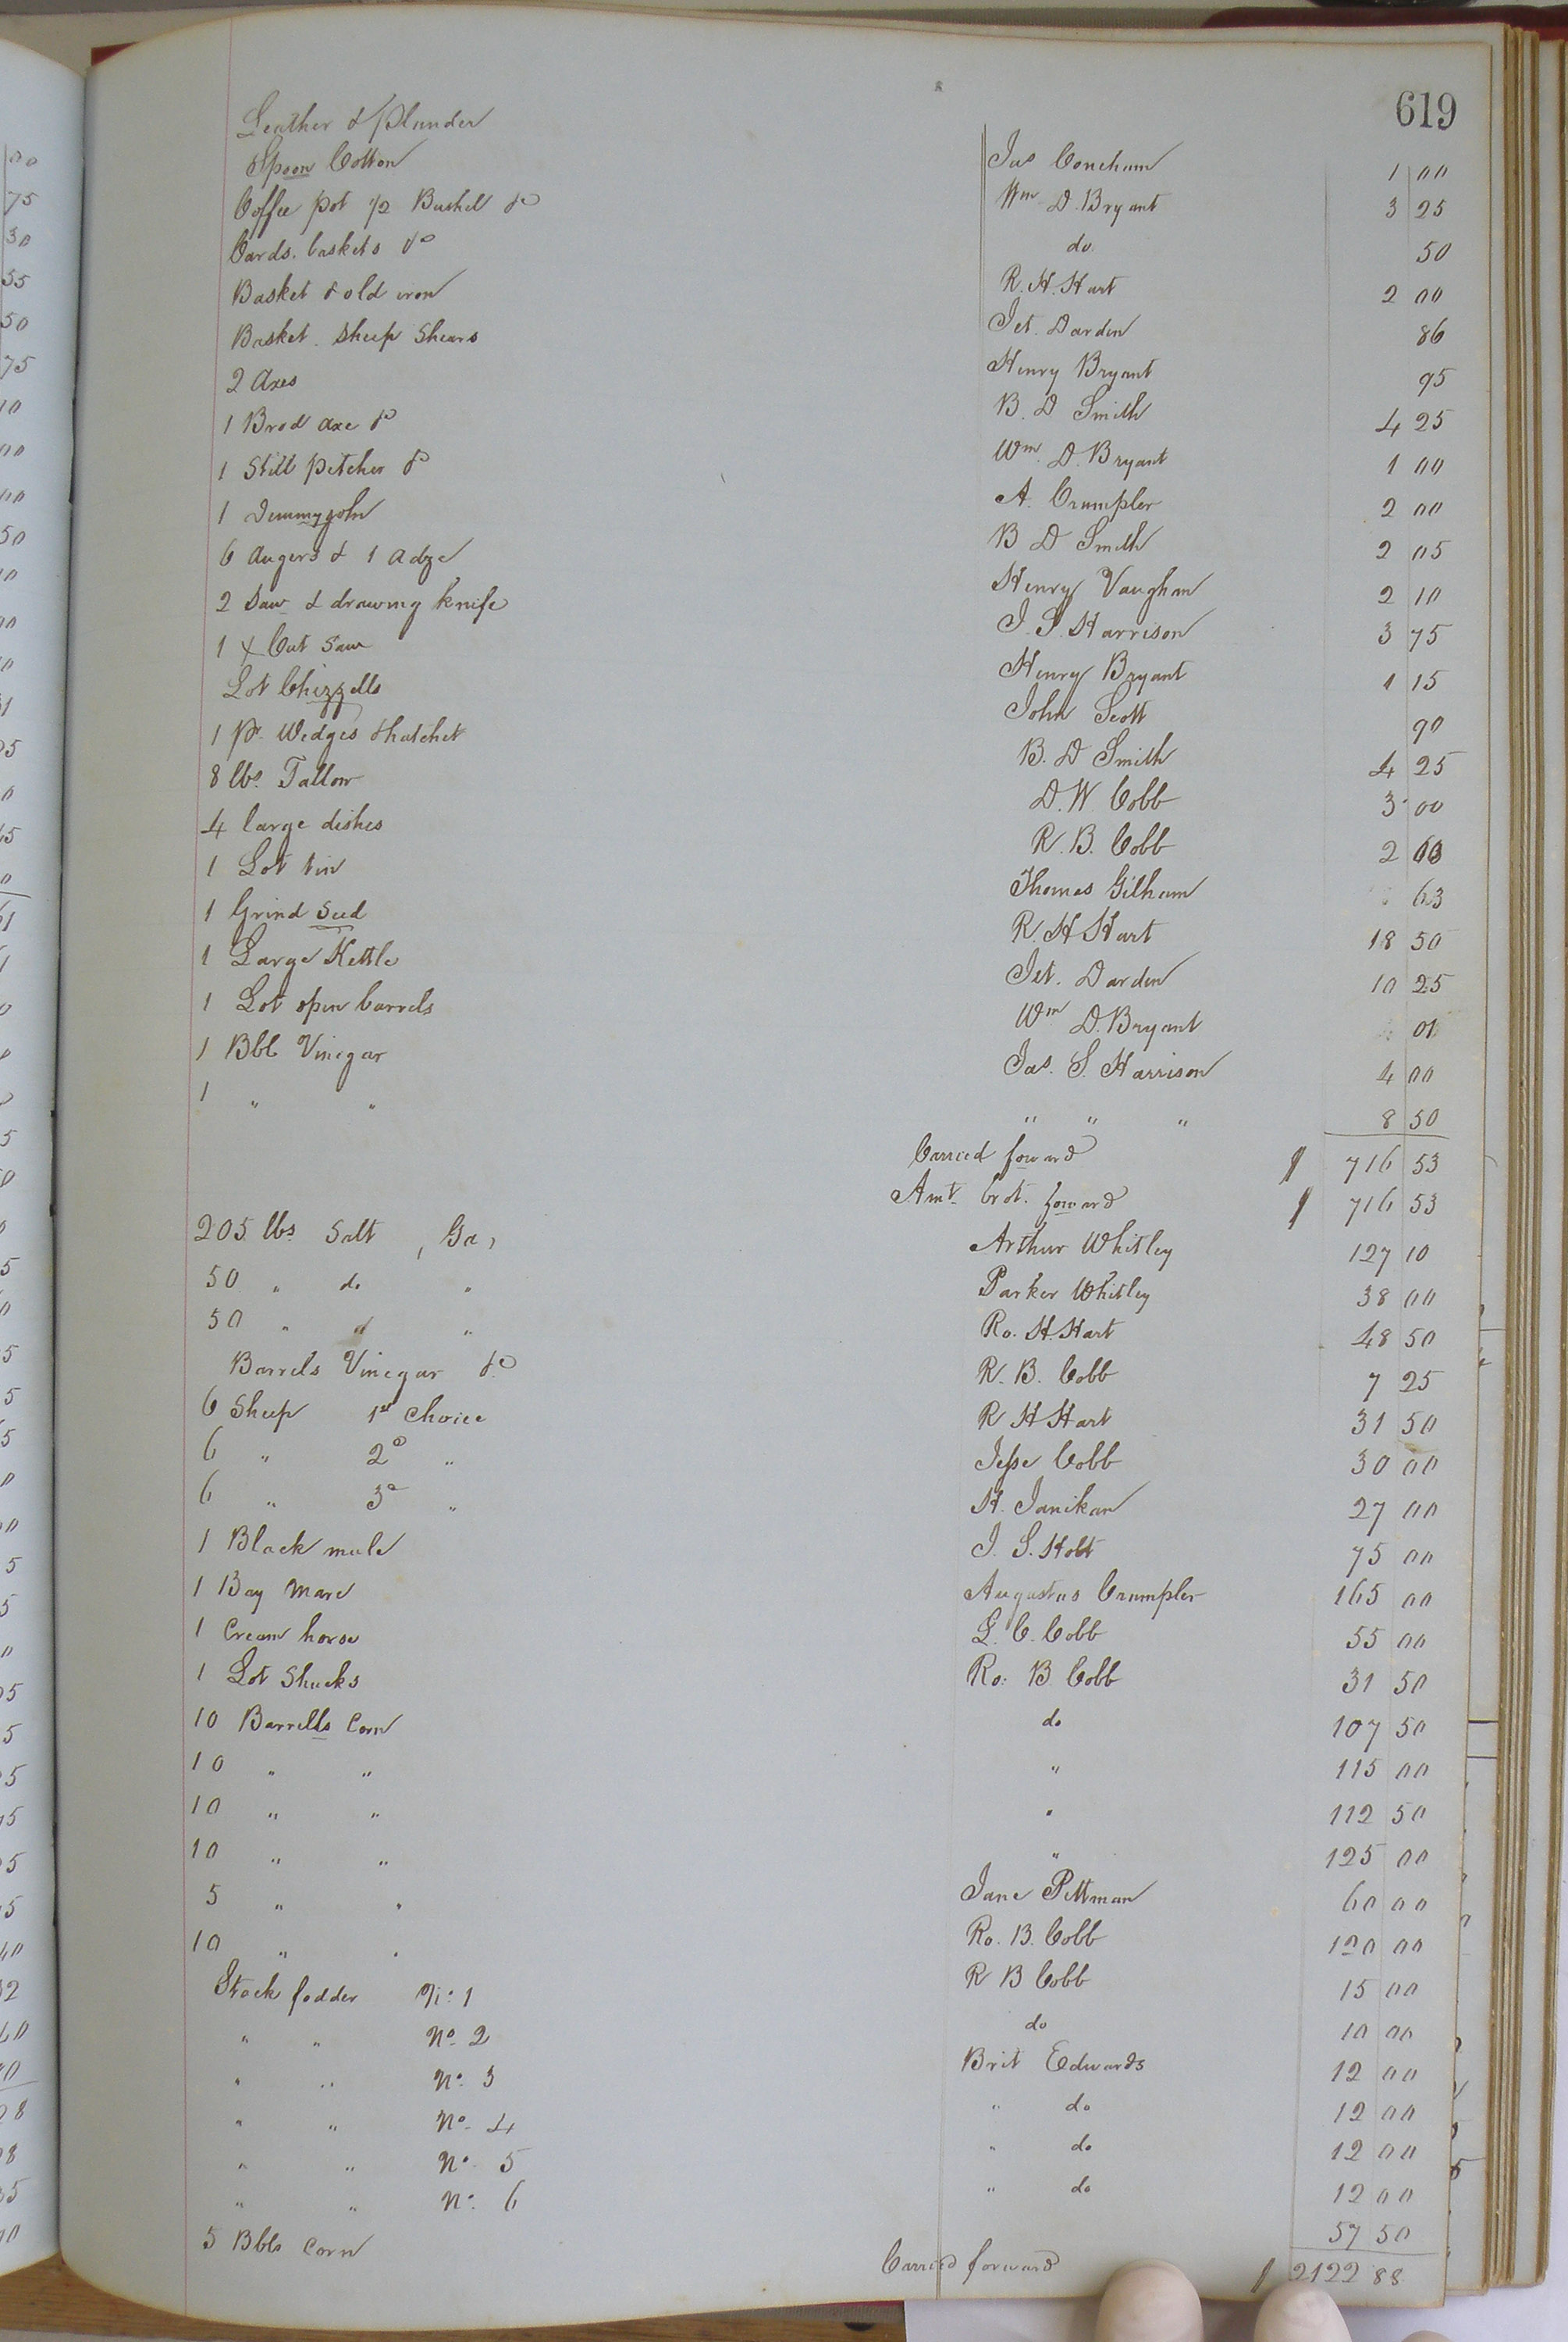 619
Leather & plunder Jas Concham 1 00
Spoon Cotton Wm D. Bryant 3 25
Coffee pot 1/2 Bushel &c do. 50
Cards. baskets &c R. H. Hart 2 00
Basket & old iron Jet. Darden 86
Basket. Sheep Shears Henry Bryant 95
2 Axes B. D Smith 4 25
1 Brod axe &c Wm. D. Bryant 1 00
1 Still pitcher &c A. Crumpler 2 00
1 Demmyjohn B D Smith 2 05
6 Augers & 1 Adze Henry Vaughan 2 10
2 Saw & drawing knife J. S. Harrison 3 75
1 X Cut Saw Henry Bryant 1 15
Lot Chizzells John Scott 90
1 pr. Wedges & hatchet B. D Smith 4 25
8 lbs. Tallow D. W. Cobb 3 00
4 large dishes R. B. Cobb 2
1 Lot tin Thomas Gilham 63
1 Grind Sud R. H Hart 18 50
1 Large Kettle Jet. Darden 10 25
1 Lot open barrels Wm D. Bryant 01
1 Bbl Vinegar Jas. S. Harrison 4 00
1 " " " " " 8 50
Carried foward $ 716 53
Amt. brot. foward $ 716 53
205 lbs Salt , Ga, Arthur Whitley 127 10
50 " do " Parker Whitley 38 00
50 " d " Ro. H. Hart 48 50
Barrels Vinegar &c R. B. Cobb 7 25
6 Sheep 1st Choice R H Hart 31 50
6 " 2d " Jesse Cobb 30 00
6 " 3d " H. Janikan 27 00
1 Black mule J. S. Holt 75 00
1 Bay Mare Augustus Crumpler 165 00
1 Cream horse L. C. Cobb 55 00
1 Lot Shucks Ro. B. Cobb 31 50
10 Barrells Corn do 107 50
10 " " " 115 00
10 " " " 112 50
10 " " " 125 00
5 " " Jane Pittman 60 00
10 " " Ro. B. Cobb 120 00
Stack fodder No. 1 R B Cobb 15 00
" " No. 2 do 10 00
" " No. 3 Brit Edwards 12 00
" " No. 4 " do 12 00
" " No. 5 " do 12 00
" " No. 6 " do 12 00
5 Bbls Corn 57 50
Carried forward $ 2122 88